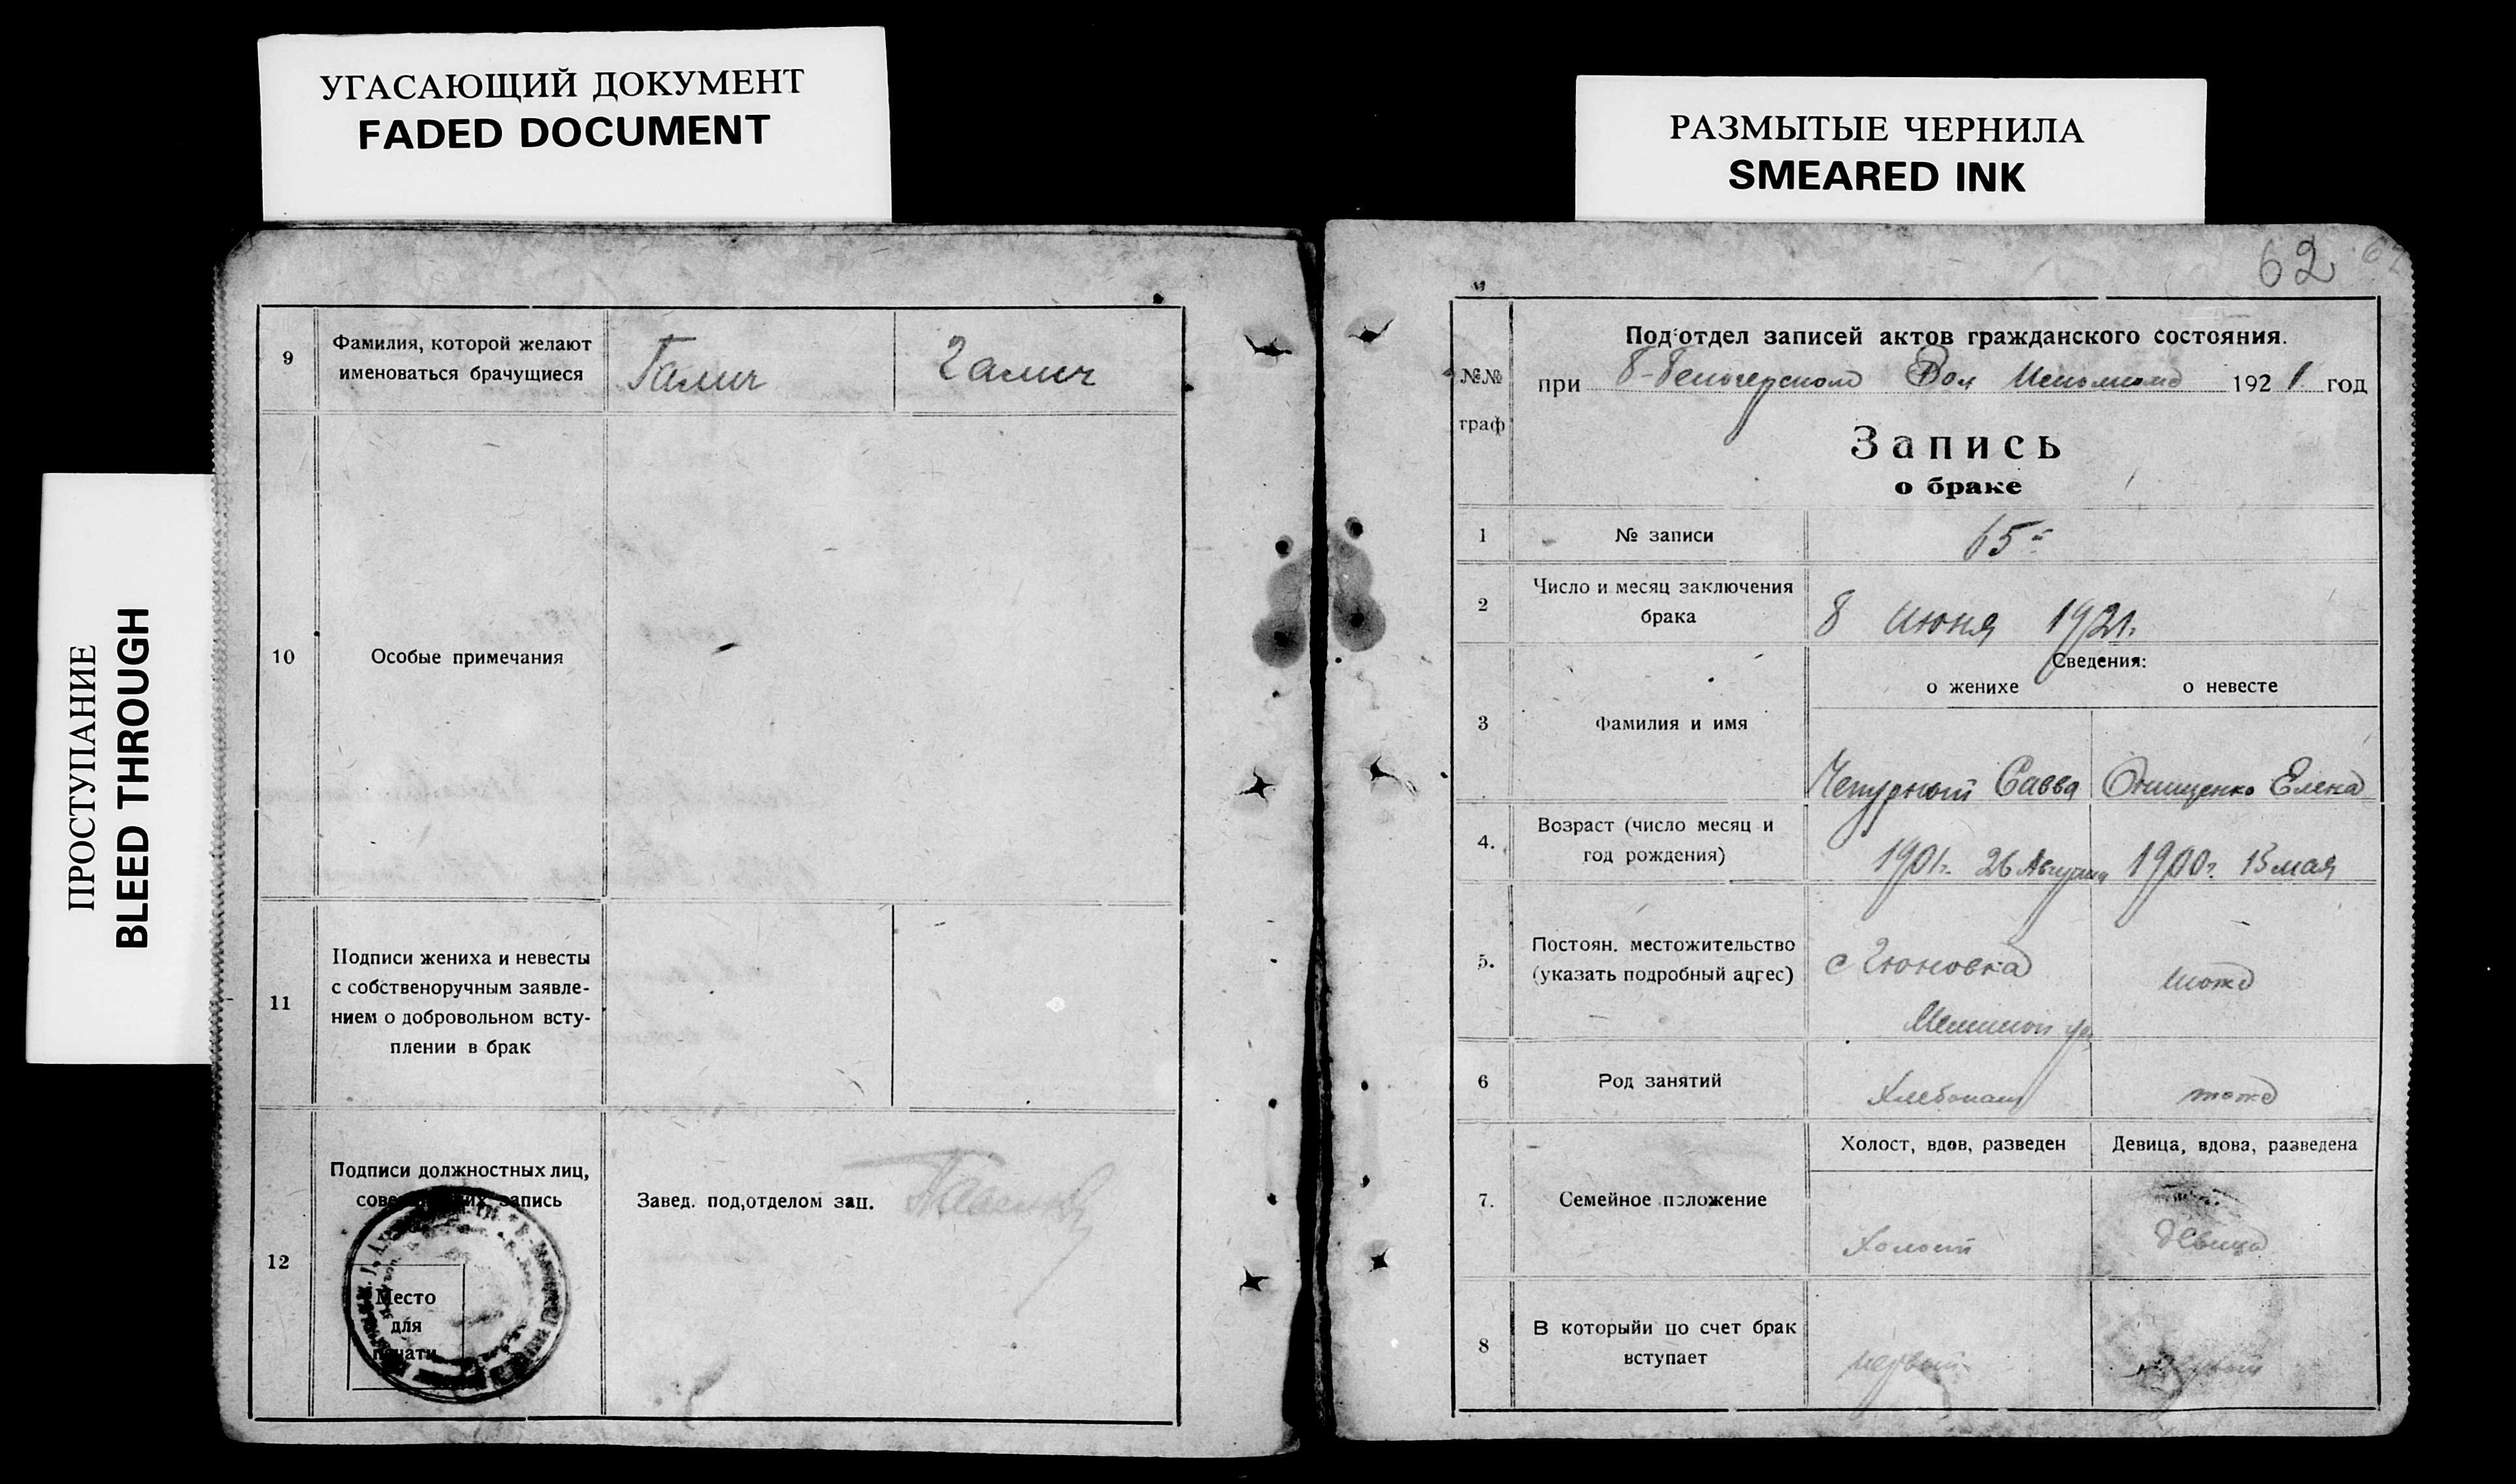 УГАСАЮЩИЙ ДОКУМЕНТ
FADED DOCUMENT
РАЗМЫТЫЕ ЧЕРНИЛА
SMEARED INK
ПРОСТУПАНИЕ
BLEED THROUGH
9
Фамилия, которой желают
именоваться брачущиеся
Галич
Галич
10
Особые примечания
11
Подписи жениха и невесты
с собственоручным заявле-
нием о добровольном всту-
плении в брак
12
Подписи должностных лиц,
запись
Место
для
печати
Завед. под,отделом зап.
62
№№
граф
Под·отдел записей актов гражданского состояния.
при Вол 1921 год
Запись
о браке
1
№ записи
65
2
Число и месяц заключения
брака
8 июня 1921.
Сведения:
о женихе
о невесте
3
Фамилия и имя
Чепурной Савва
Онищенко Елена
4.
Возраст (число месяц и
год рождения)
1901г. 26 Августа
1900г. 13 мая
5.
Постоян. местожительство
(указать подробный адрес)
с Гюновка
Мелитоп у
тоже
6
Род занятий
Хлебопаш
тоже
7.
Семейное положение
Холост, вдов, разведен
Девица, вдова, разведена
Холост
девица
8
В которыйи по счет брак
вступает
первый
первый